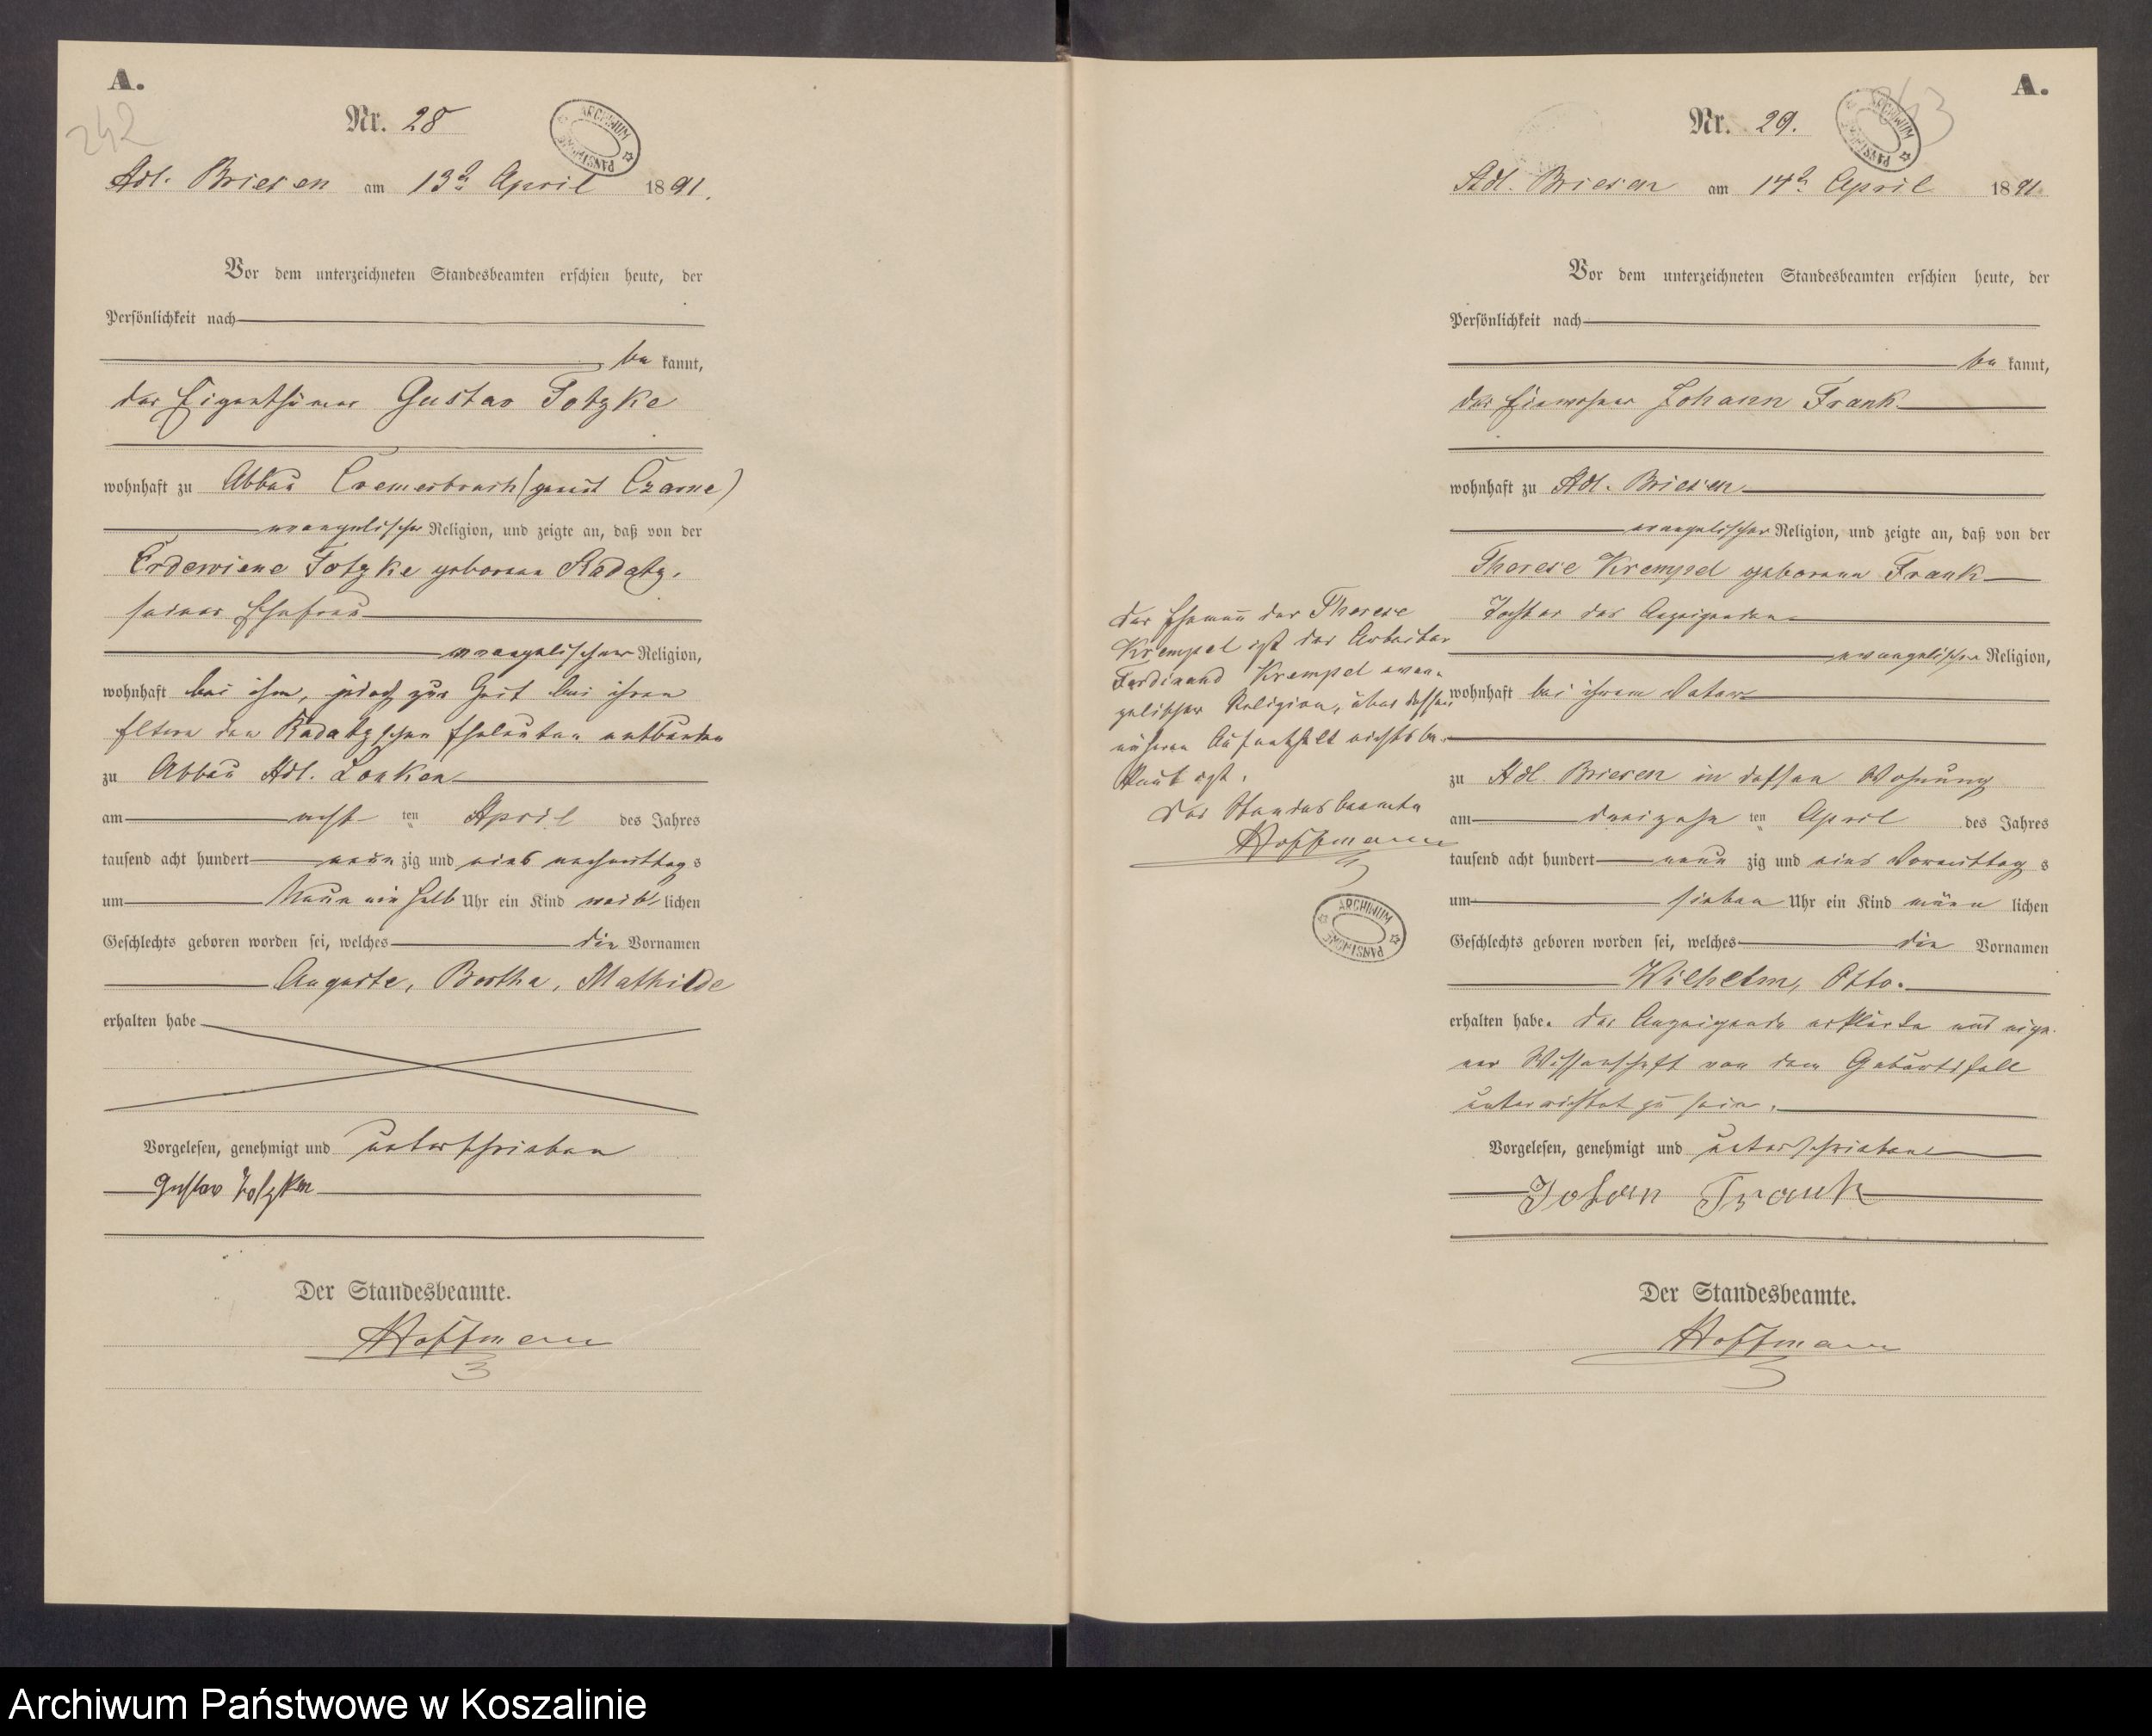 A.
242
Nr. 28
ARCHIWUM PAŃSTWOWE
Adl. Briesen am 13t April 1891.
Vor dem unterzeichneten Standesbeamten erschien heute, der
Persönlichkeit nach
be kannt,
der Eigenthümer Gustav Totzke
wohnhaft zu Abbau Cremerbruch (genannt Czarne)
evangelischer Religion, und zeigte an, daß von der
Totzke geborene Radatz,
seiner Ehefrau
evangelischer Religion,
wohnhaft bei ihm, jedoch zur Zeit bei ihren
Eltern den Radatzschen Eheleuten entbunden
zu Abbau Adl. Lonken
am acht ten April des Jahres
tausend acht hundert neun zig und eins nachmittags
um Neun ein halb Uhr ein Kind weib lichen
Geschlechts geboren worden sei, welches die Vornamen
Auguste, Bertha, Mathilde
erhalten habe
Vorgelesen, genehmigt und unterschrieben
Gustav Totzke
Der Standesbeamte.
Hoffmann
A.
243
Nr. 29.
ARCHIWUM PAŃSTWOWE
Adl. Briesen am 14t April 1891
Vor dem unterzeichneten Standesbeamten erschien heute, der
Persönlichkeit nach
be kannt,
der Einwohner Johann Frank
wohnhaft zu Adl. Briesen
evangelischer Religion, und zeigte an, daß von der
Therese Krempel geborene Frank
Tochter des Anzeigenden
evangelischer Religion,
wohnhaft bei ihrem Vater
zu Adl. Briesen in dessen Wohnung
am dreizehn ten April des Jahres
tausend acht hundert neun zig und eins Vormittags
um sieben Uhr ein Kind männ lichen
Geschlechts geboren worden sei, welches die Vornamen
Wilhelm, Otto.
erhalten habe. Der Anzeigende erklärte aus eige-
ner Wissenschaft von dem Geburtsfall
unterrichtet zu sein.
Vorgelesen, genehmigt und unterschrieben
Johann Frank
Der Standesbeamte.
Hoffmann
Der Ehemann der Therese
Krempel ist der Arbeiter
Ferdinand Krempel evan-
gelischer Religion, über dessen
näheren Aufenthalt nichts be-
kannt ist.
Der Standesbeamte
Hoffmann
ARCHIWUM PAŃSTWOWE
Archiwum Państwowe w Koszalinie